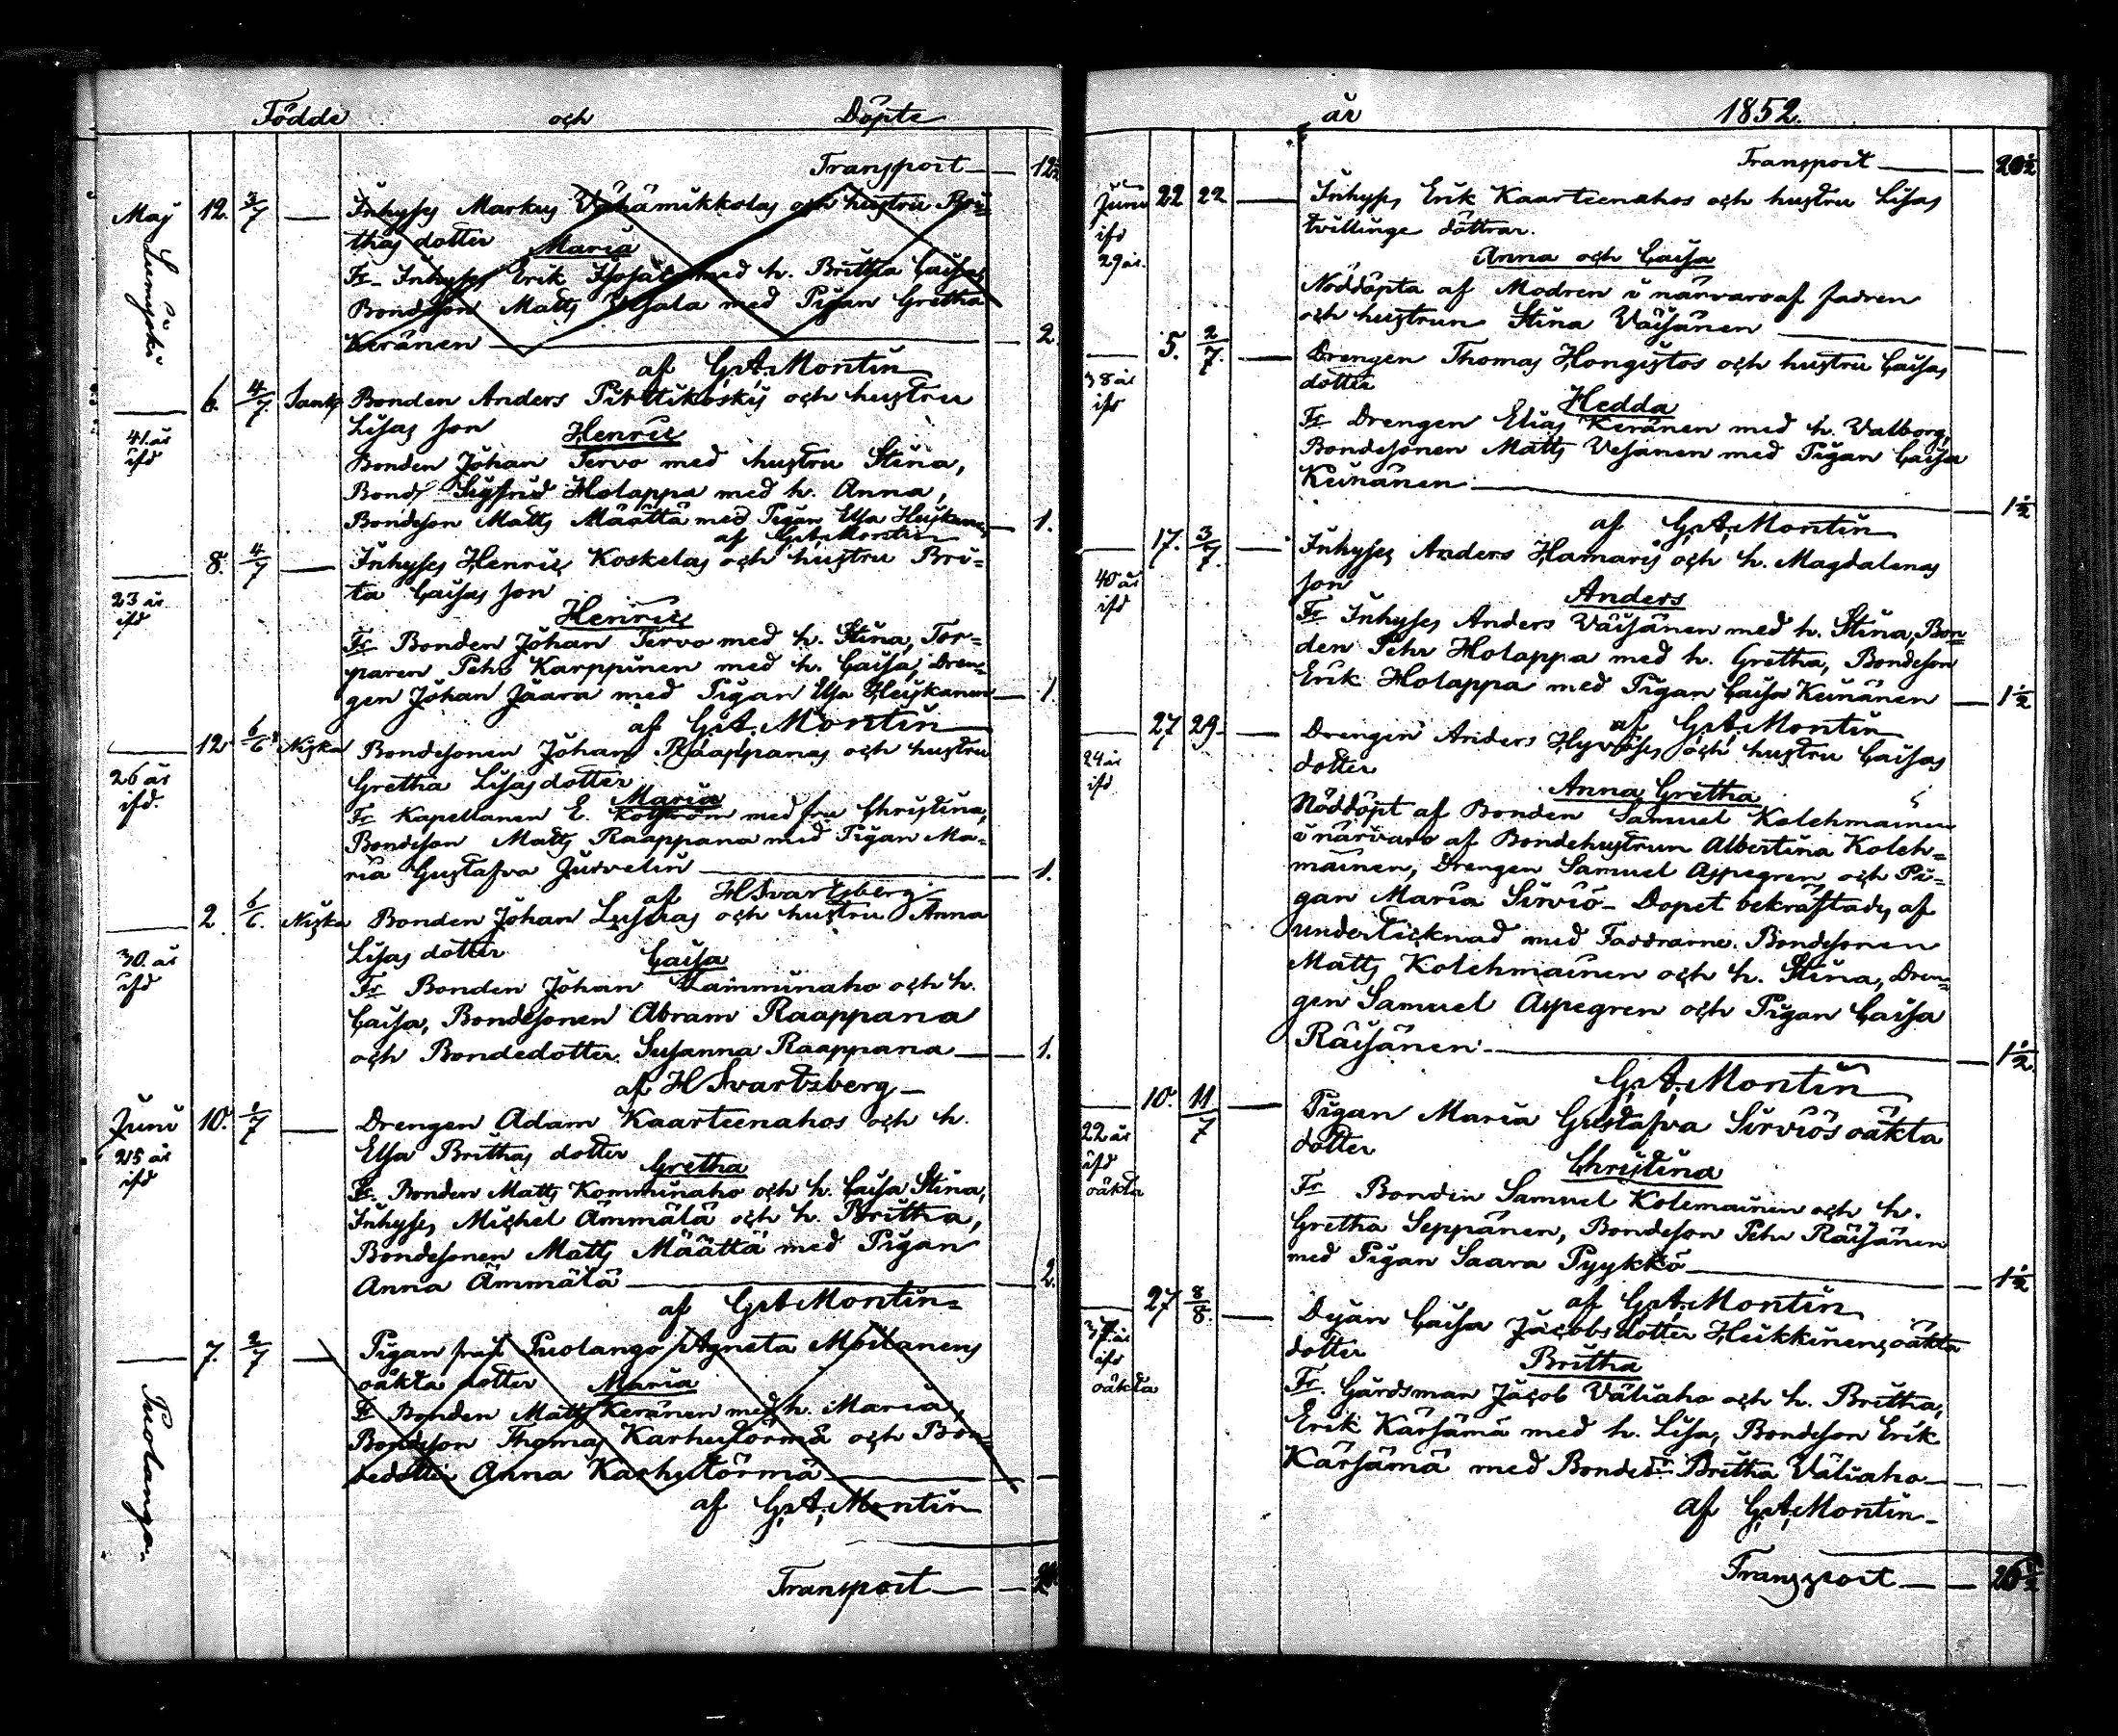 Födde och Döpte
Transport — 12½
Maj 12. 3/7 — Inhyses Markus Vähämikkolas och hustru Bri-
thas dotter Maria
Suomijärvi
Fr. Inhyses Erik med h. Britha Caisa,
Bondeson Matts med Pigan Gretha
Keränen — 2.
af G. A. Montin
6. 4/7 Bonden Anders Pirttikoskis och hustru
Lisas son Henric
41. år
ifd
Bonden Johan Tervo med hustru Stina,
Bond Sigfrid Holappa med h. Anna,
Bondeson Matts Määttä med Pigan Elsa Heiskanen — 1.
af G. A. Montin
8. 4/7 — Inhyses Henric Koskelas och hustru Bri-
ta Caisas son
23 år
ifd
Henric
Fr Bonden Johan Tervo med h. Stina, Tor-
paren Pehr Karppinen med h. Caisa, Dren-
gen Johan Jaara med Pigan Elsa Heiskanen — 1
af G. A. Montin
12 6/6 Niska Bondesonen Johan Raappanas och hustru
Gretha Lisas dotter
26 år
ifd.
Maria
Fr Kapellanen E. med fru Christina,
Bondeson Matts Raappana med Pigan Ma-
ria Gustafva Jurvelin — 1.
af H Svartzberg
2. 6/6. Niska Bonden Johan och hustru Anna
Lisas dotter Caisa
30. år
ifd
Fr Bonden Johan Lamminaho och h.
Caisa, Bondesonen Abram Raappana
och Bondedotter. Susanna Raappana — 1.
af H Svartzberg —
Juni 10. 1/7 — Drengen Adam Kaarteenahos och h.
Elsa Brithas dotter
25 år
ifd
Gretha
Fr. Bonden Matts Komminaho och h. Caisa Stina,
Inhyses Michel Ämmälä och h. Britha,
Bondesonen Matts Määttä med Pigan
Anna Ämmälä — 2.
af G. A. Montin
7. 2/7 — Pigan från Puolango Agneta Moilanens
oäkta dotter Maria
Puolango.
Fr Bonden Matts Keränen med h. Maria,
Bondeson Thomas Karhutörmä och Bon-
dedotter Anna Karhutörmä —
af G. A. Montin
Transport —
år 1852.
Transport — 20½
Juni 22 22 — Inhyses Erik Kaarteenahos och hustru Lisas
tvillinge döttrar.
ifd
29 år.
Anna och Caisa
Nöddöpta af Modren i närvaro af fadren
och hustrun Stina Väisänen —
5. 2/7. — Drengen Thomas Hongistos och hustru Caisas
dotter Hedda
38 år
ifd
Fr Drengen Elias Keränen med h. Valborg,
Bondesonen Matts Vesanen med Pigan Caisa
Keinänen — 1½
af G. A. Montin
17. 3/7. — Inhyses Anders Hamaris och h. Magdalenas
son Anders
40 år
ifd
Fr Inhyses Anders Väisänen med h. Stina, Bon-
den Pehr Holappa med h. Gretha, Bondeson
Erik Holappa med Pigan Caisa Keinänen — 1½
af G. A. Montin
27 29 — Drengen Anders och hustru Caisas
dotter
24 år
ifd
Anna Gretha
Nöddöpt af Bonden Samuel Kolehmainen
i närvaro af Bondehustrun Albertina Koleh-
mainen, Drengen Samuel Aspegren och Pi-
gan Maria Sirviö — Dopet bekräftades af
undertecknad med Faddrarne. Bondesonen
Matts Kolehmainen och h. Stina, Dren-
gen Samuel Aspegren och Pigan Caisa
Räisänen — 1½
G. A. Montin
10. 11/7 — Pigan Maria Gustafva Sirviös oäkta
dotter
22 år
ifd
oäkta
Christina
Fr Bonden Samuel Kolemainen och h.
Gretha Seppänen, Bondeson Pehr Räisänen
med Pigan Saara Pyykkö — 1½
af G. A. Montin
27 8/8. — Dejan Caisa Jacobsdotter Heikkinens oäkta
dotter Britha
37. år
ifd
oäkta
Fr. Gårdsman Jacob Väliaho och h. Britha,
Erik Kärsämä med h. Lisa, Bondeson Erik
Kärsämä med Bondedr. Britha Väliaho —
af G. A. Montin —
Transport — 26½